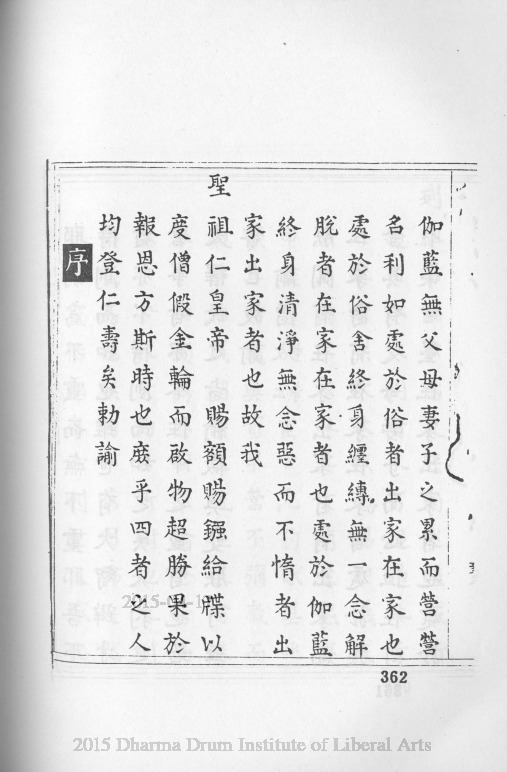 伽藍無父母妻子之累而營營
名利如處於俗者出家在家也
處於俗舍終身纏縛無一念解
脫者在家在家者也處於伽藍
終身清淨無念惡而不惰者出
家出家者也故我
聖祖仁皇帝賜額賜鏹給牒以
度僧假金輪而啟物超勝果於
報恩方斯時也庻乎四者之人
均登仁壽矣勅諭
序
362
2015 Dharma Drum Institute of Liberal Arts